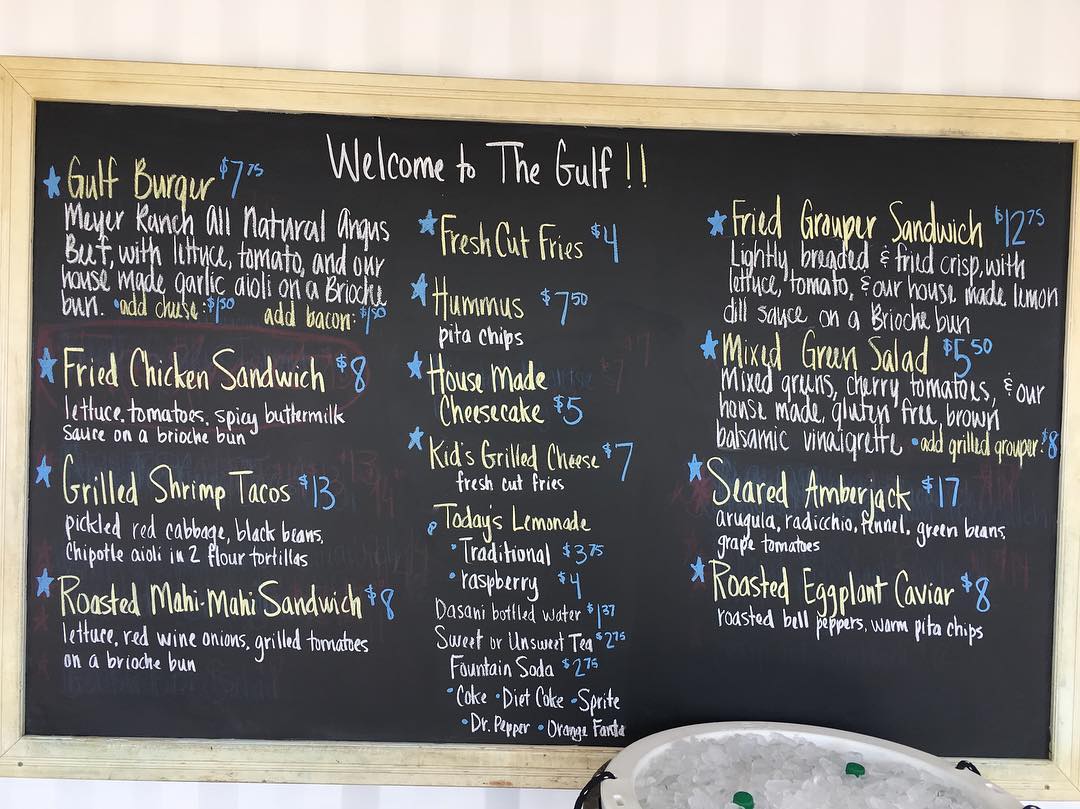 Welcome to The Gulf !!
Gulf Burger $7.75
Meyer Ranch All Natural Angus
Beef, with lettuce, tomato, and our
house made garlic aioli on a Brioche
bun. • add cheese: $1.50 add bacon: $1.50
Fried Chicken Sandwich $8
lettuce, tomatoes, spicy buttermilk
sauce on a brioche bun
Grilled Shrimp Tacos $13
pickled red cabbage, black beans,
Chipotle aioli in 2 flour tortillas
Roasted Mahi-Mahi Sandwich $8
lettuce, red wine onions, grilled tomatoes
on a brioche bun
Fresh Cut Fries $4
Hummus $7.50
pita chips
House Made
Cheesecake $5
Kid's Grilled Cheese $7
fresh cut fries
Today's Lemonade
• Traditional $3.75
• raspberry $4
Dasani bottled water $1.37
Sweet or Unsweet Tea $2.75
Fountain Soda $2.75
• Coke • Diet Coke • Sprite
• Dr. Pepper • Orange Fanta
Fried Grouper Sandwich $12.75
Lightly breaded & fried crisp, with
lettuce, tomato, & our house made lemon
dill sauce on a Brioche bun
Mixed Green Salad $5.50
Mixed greens, cherry tomatoes, & our
house made, gluten free, brown
balsamic vinaigrette • add grilled grouper: $8
Seared Amberjack $17
arugula, radicchio, fennel, green beans,
grape tomatoes
Roasted Eggplant Caviar $8
roasted bell peppers, warm pita chips